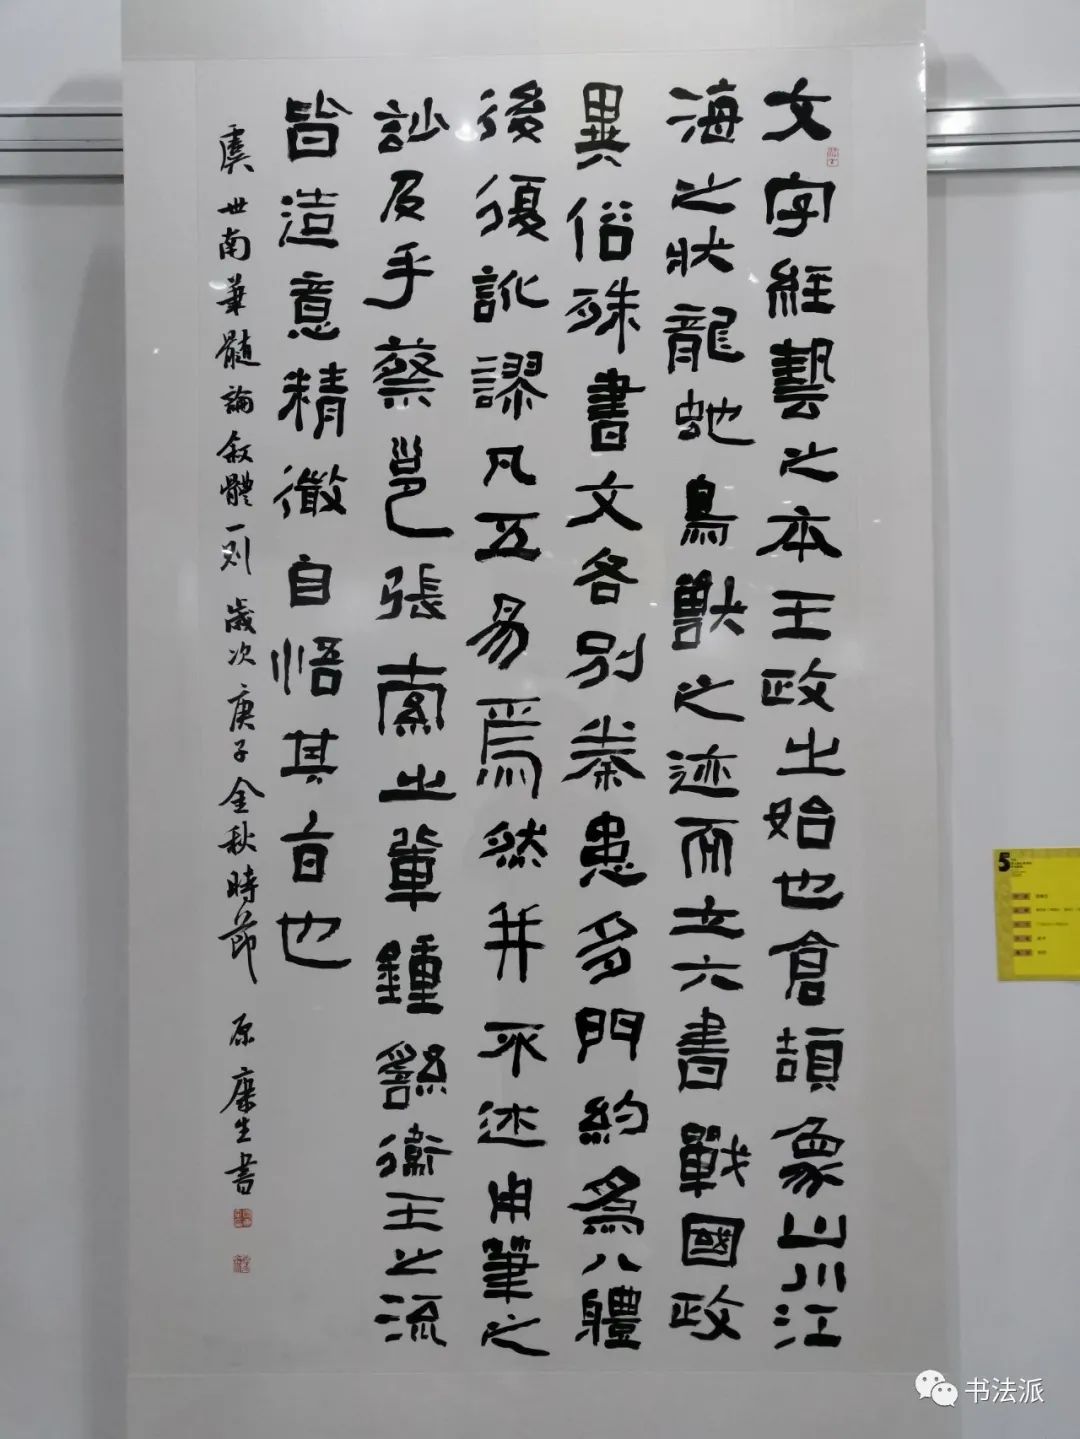 文字經藝之本王政之始也倉頡象山川江
海之狀龍虵鳥獸之迹而立六書戰國政
異俗殊書文各別秦患多門約為八體
後復訛謬凡五易焉然并不述用筆之
訟及乎蔡邕張索之輩鍾繇衛王之流
皆造意精微自悟其旨也
虞世南筆髓論敘體一則 歲次庚子金秋時節 原康生書
5
书法派